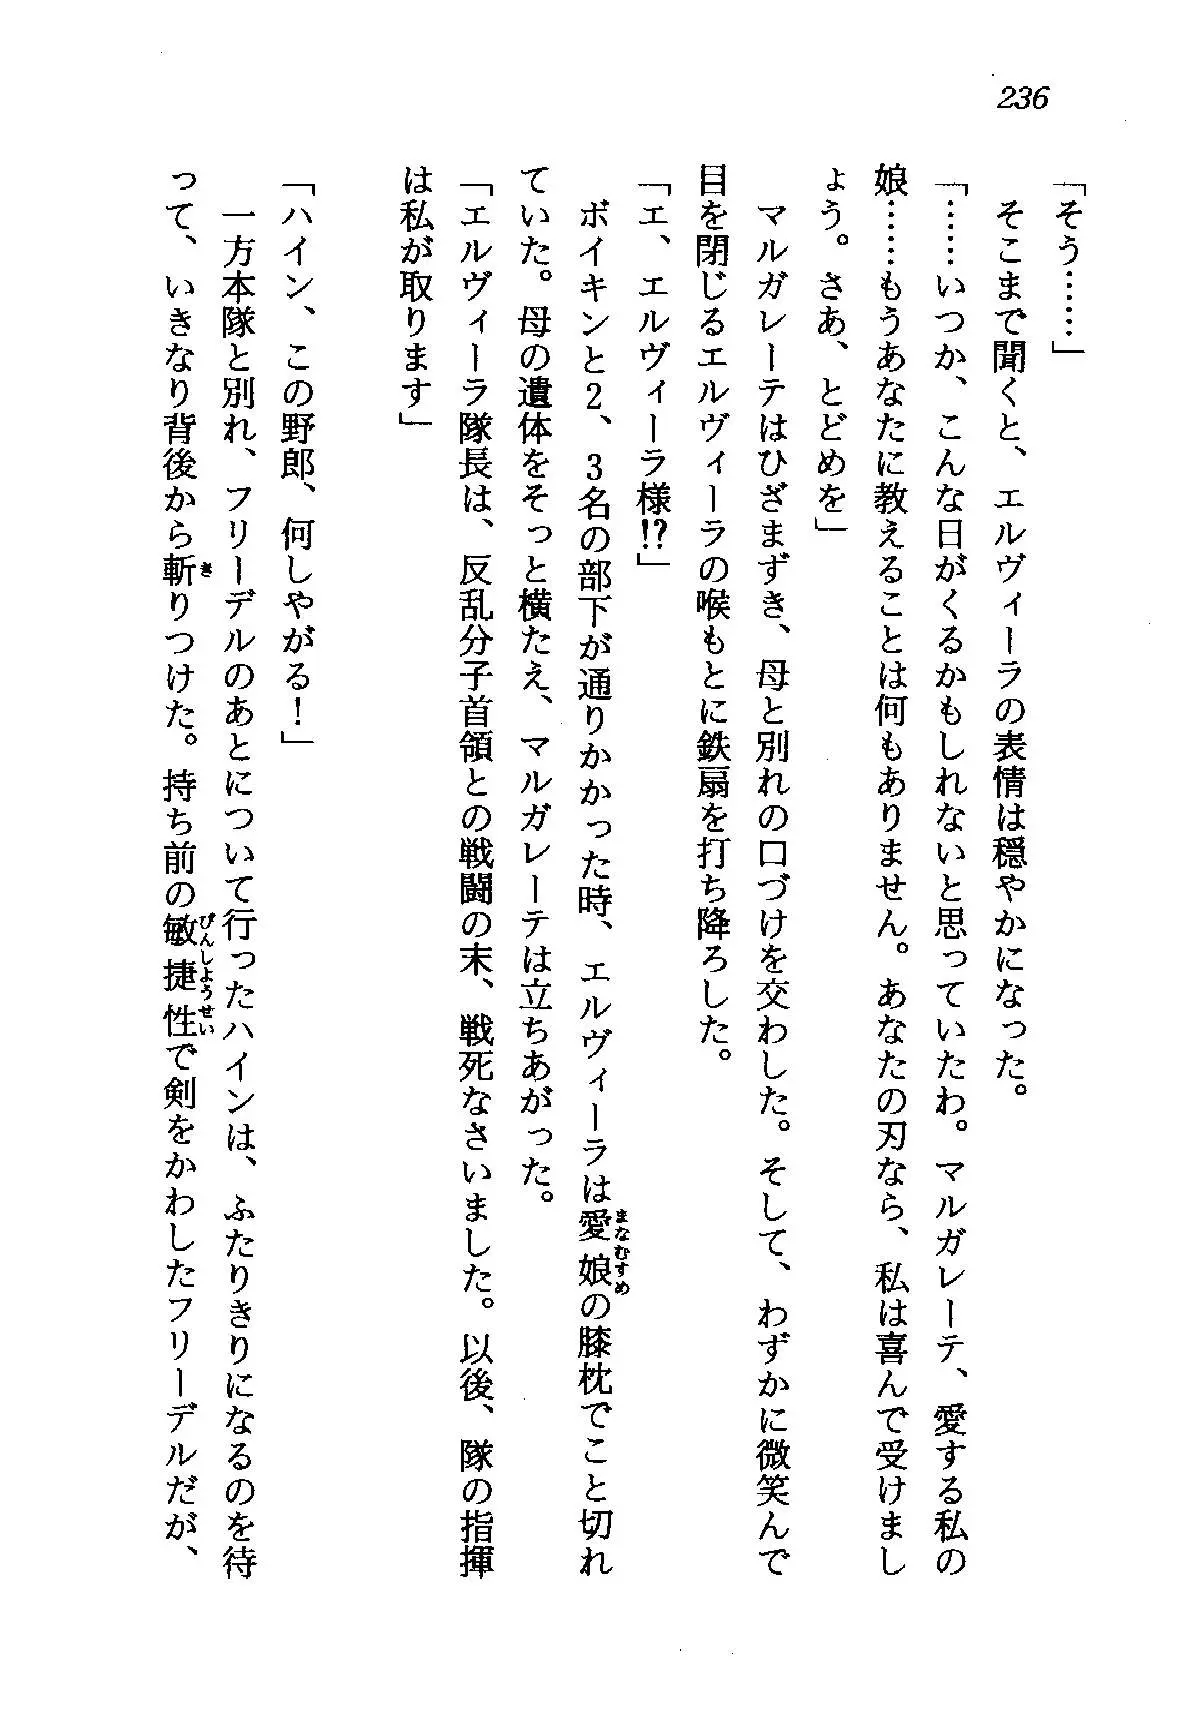 236
「そう……」
　そこまで聞くと、エルヴィーラの表情は穏やかになった。
「……いつか、こんな日がくるかもしれないと思っていたわ。マルガレーテ、愛する私の
娘……もうあなたに教えることは何もありません。あなたの刃なら、私は喜んで受けまし
ょう。さあ、とどめを」
　マルガレーテはひざまずき、母と別れの口づけを交わした。そして、わずかに微笑んで
目を閉じるエルヴィーラの喉もとに鉄扇を打ち降ろした。
「エ、エルヴィーラ様!?」
　ボイキンと2、3名の部下が通りかかった時、エルヴィーラは愛娘の膝枕でこと切れ
ていた。母の遺体をそっと横たえ、マルガレーテは立ちあがった。
「エルヴィーラ隊長は、反乱分子首領との戦闘の末、戦死なさいました。以後、隊の指揮
は私が取ります」
「ハイン、この野郎、何しやがる！」
　一方本隊と別れ、フリーデルのあとについて行ったハインは、ふたりきりになるのを待
って、いきなり背後から斬りつけた。持ち前の敏捷性で剣をかわしたフリーデルだが、